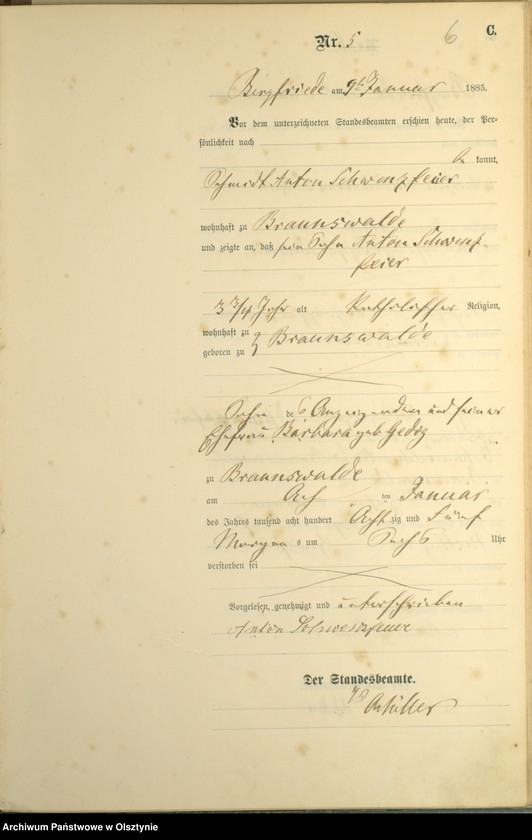 6 C.
Nr. 5
Bergfriede am 9t Januar 1885.
Vor dem unterzeichneten Standesbeamten erschien heute, der Per-
sönlichkeit nach
be kannt,
Schmidt Anton Schwenpfeier
wohnhaft zu Braunswalde
und zeigte an, daß sein Sohn Anton Schwenp-
feier
3 3/4 Jahr alt katholischer Religion,
wohnhaft zu
geboren zu Braunswalde
Sohn des Anzeigenden und seiner
Ehefrau Barbara geb
zu Braunswalde
am Acht ten Januar
des Jahres tausend acht hundert Acht zig und Fünf
Morgen s um Sechs Uhr
verstorben sei
Vorgelesen, genehmigt und unterschrieben
Anton
Der Standesbeamte.
Archiwum Państwowe w Olsztynie